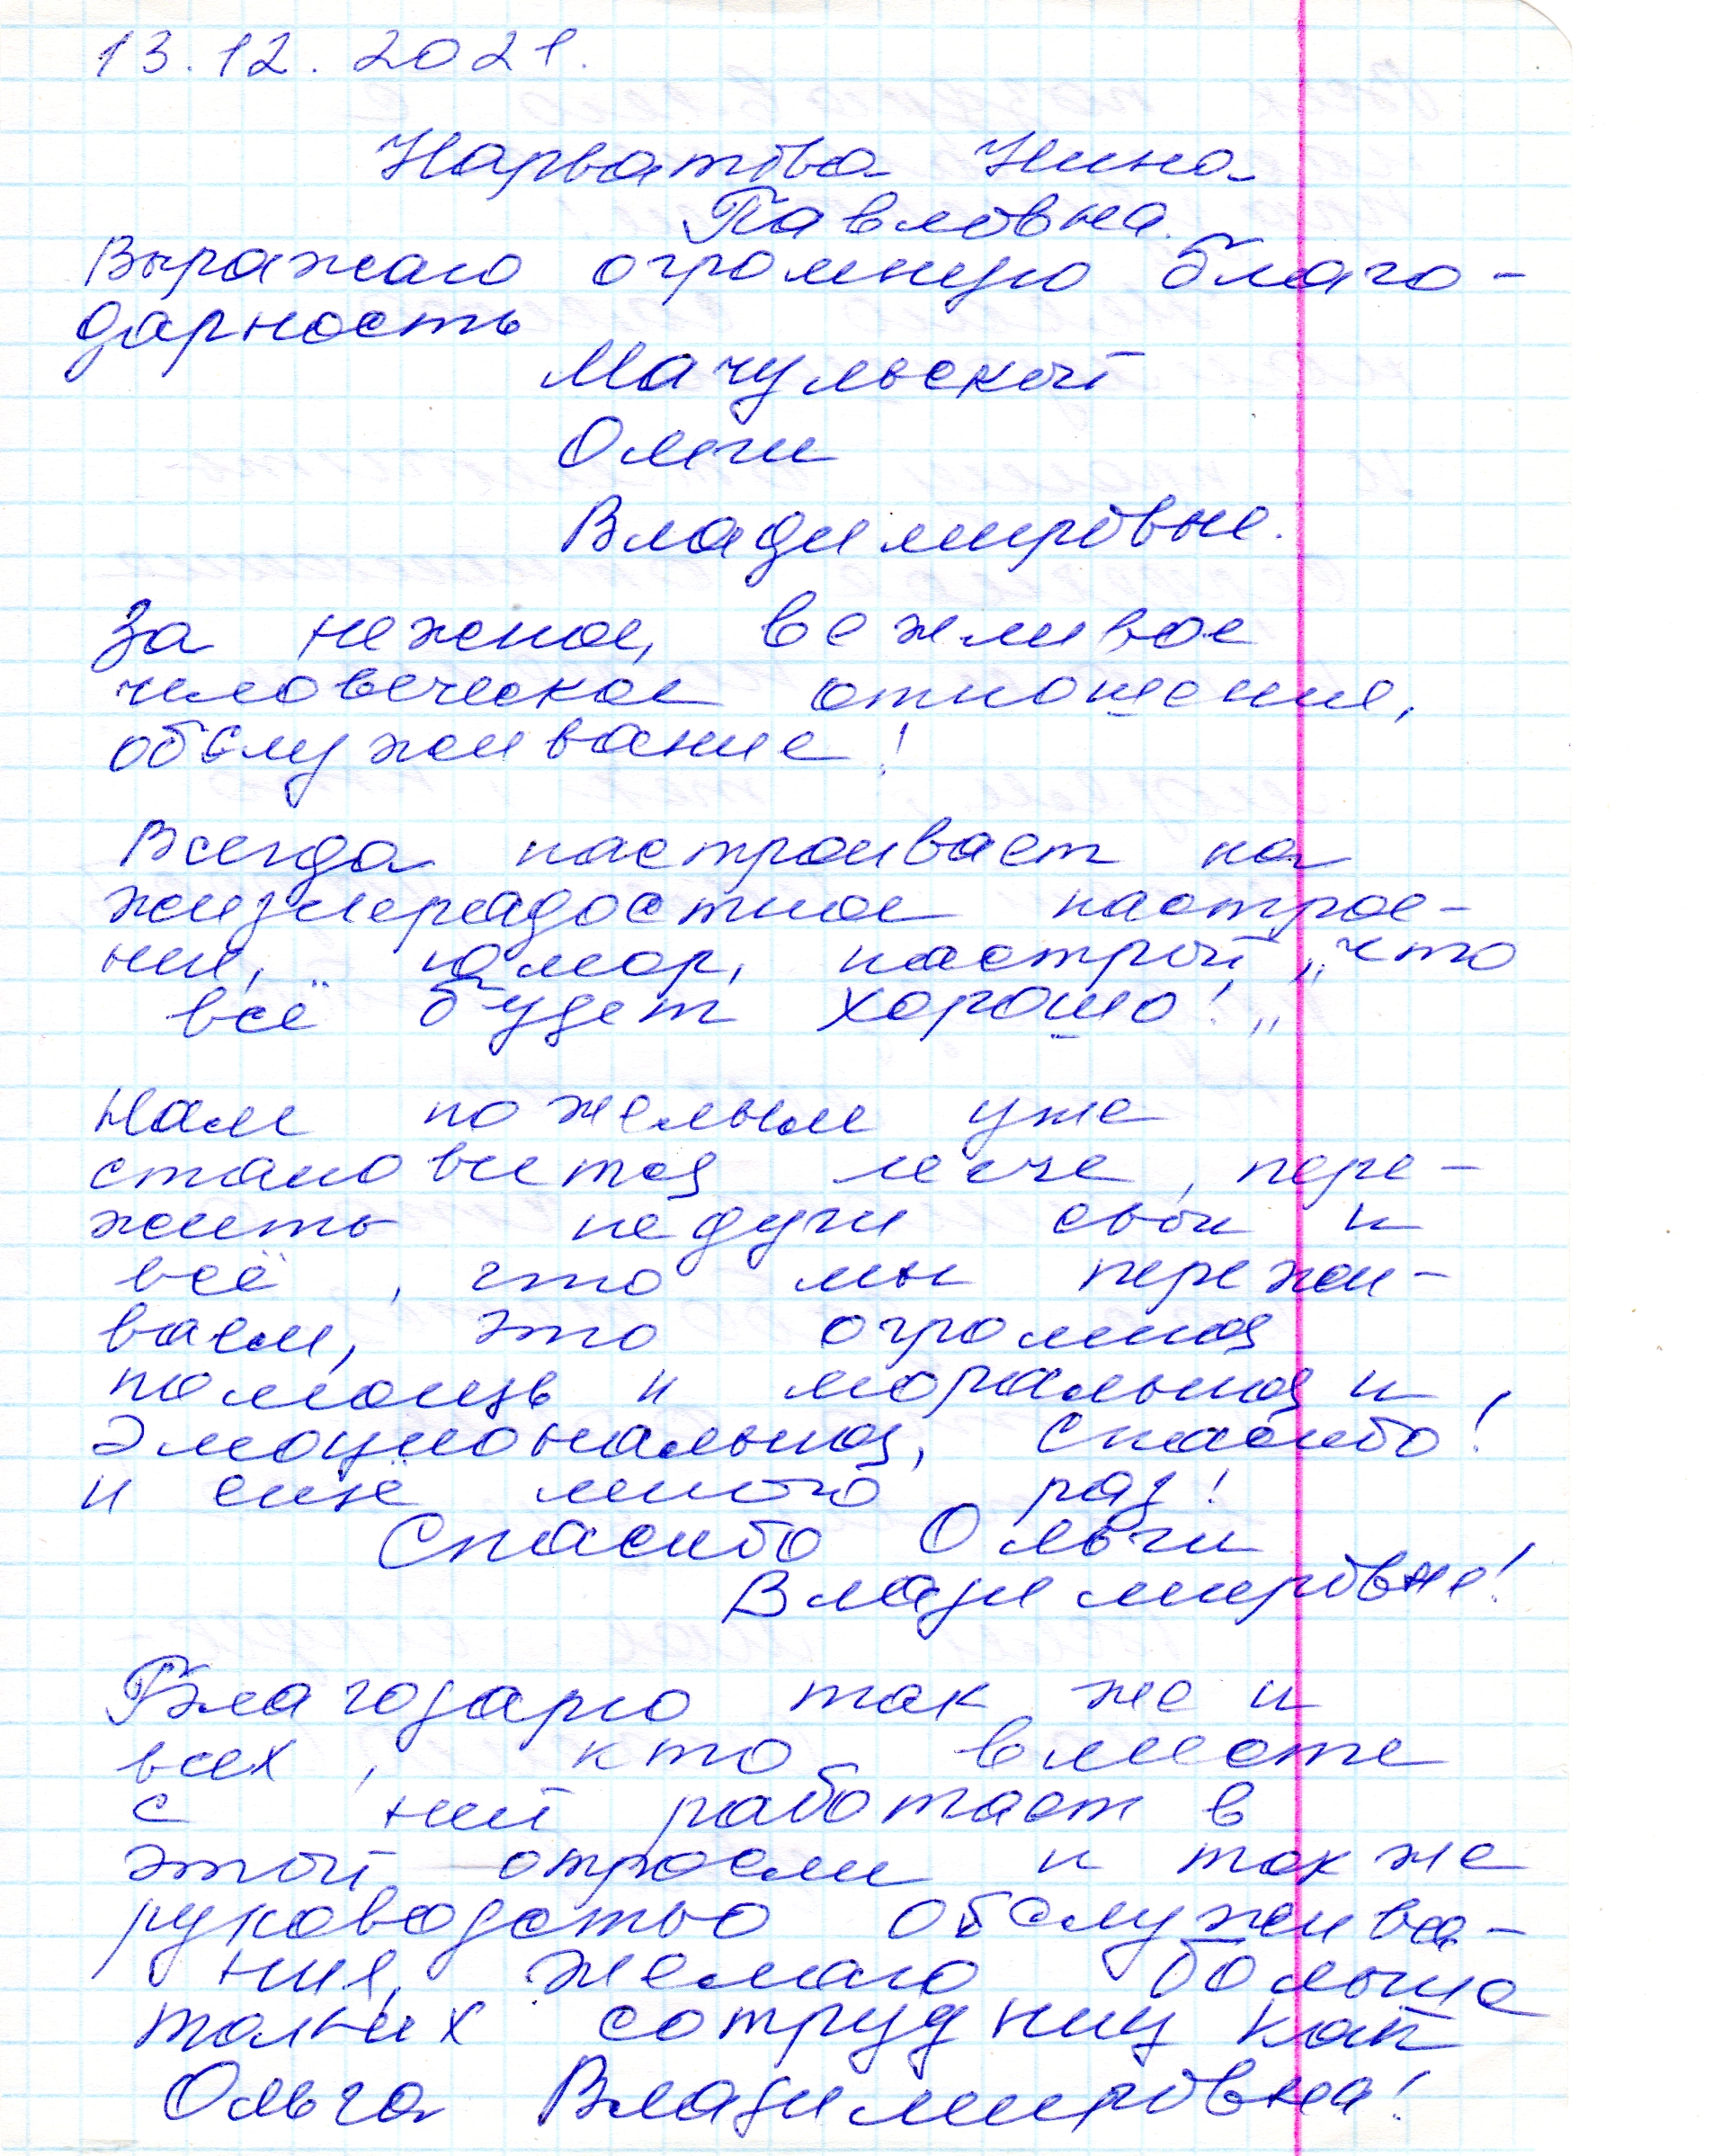 13.12.2021.
Нарватова Нина
Павловна.
Выражаю огромную благо-
дарность
Мачульской
Ольги
Владимировне.
За нежное, вежливое
человеческое отношение,
обслуживание!
Всегда настроивает на
жизнерадостное настрое-
ние, юмор, настрой „что
всё будет хорошо!„
Нам пожелым уже
становится легче, пере-
жить недуги свои и
всё, что мы пережи-
ваем, это огромная
помощь и моральная и
эмоциональная, Спасибо!
и ещё много раз!
Спасибо Ольги
Владимировне!
Благодарю так же и
всех, кто вместе
с ней работает в
этой отросли и так же
руководство обслужива-
ния, желаю больше
таких сотрудниц как
Ольга Владимировна!